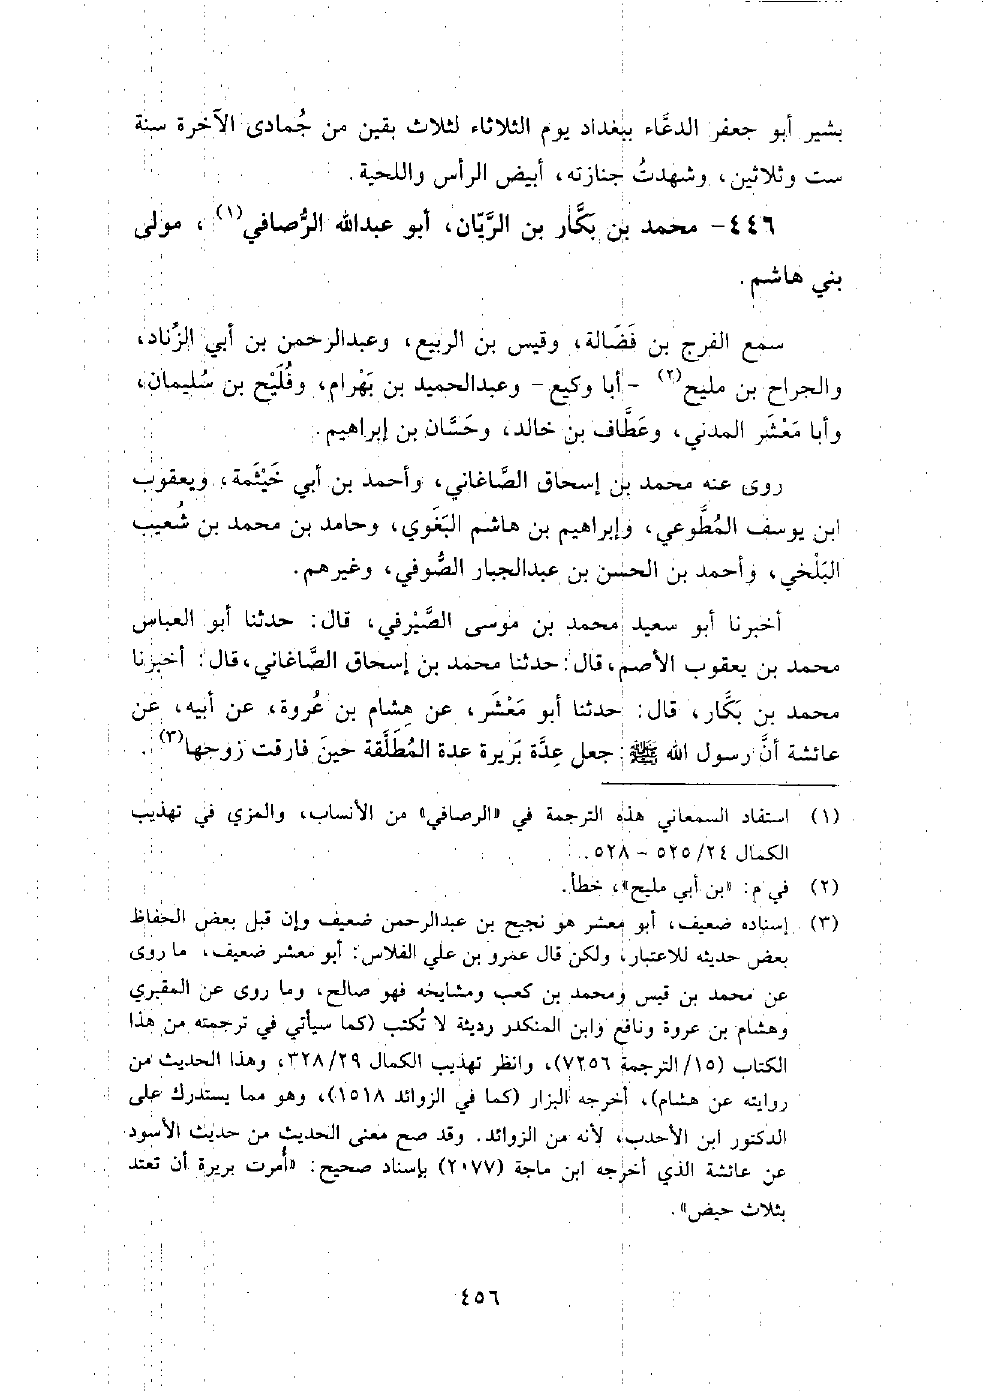 بشير أبو جعفر الدعَّاء ببغداد يوم الثلاثاء لثلاث بقين من جُمادى الآخرة سنة
ست وثلاثين، وشهدتُ جنازته، أبيض الرأس واللحية.
٤٤٦- محمد بن بَكَّار بن الرَّيَّان، أبو عبدالله الرُّصافي(١)، مولى
بني هاشم.
سمع الفرج بن فَضَالة، وقيس بن الربيع، وعبدالرحمن بن أبي الزِّناد،
والجراح بن مليح(٢) -أبا وكيع- وعبدالحميد بن بَهْرام، وفُلَيْح بن سُليمان،
وأبا مَعْشَر المدني، وعَطَّاف بن خالد، وحَسَّان بن إبراهيم.
روى عنه محمد بن إسحاق الصَّاغاني، وأحمد بن أبي خَيْثَمة، ويعقوب
ابن يوسف المُطَّوعي، وإبراهيم بن هاشم البَغَوي، وحامد بن محمد بن شُعيب
البَلْخي، وأحمد بن الحسن بن عبدالجبار الصُّوفي، وغيرهم.
أخبرنا أبو سعيد محمد بن موسى الصَّيْرفي، قال: حدثنا أبو العباس
محمد بن يعقوب الأصم، قال: حدثنا محمد بن إسحاق الصَّاغاني، قال: أخبرنا
محمد بن بَكَّار، قال: حدثنا أبو مَعْشَر، عن هِشام بن عُروة، عن أبيه، عن
عائشة أنَّ رسول الله ﷺ جعل عِدَّة بَريرة عدة المُطَلَّقة حينَ فارقت زوجها(٣).
(١) استفاد السمعاني هذه الترجمة في «الرصافي» من الأنساب، والمزي في تهذيب
الكمال ٢٤/ ٥٢٥ - ٥٢٨.
(٢) في م: «بن أبي مليح»، خطأ.
(٣) إسناده ضعيف، أبو معشر هو نجيح بن عبدالرحمن ضعيف وإن قبل بعض الحفاظ
بعض حديثه للاعتبار، ولكن قال عمرو بن علي الفلاس: أبو معشر ضعيف، ما روى
عن محمد بن قيس ومحمد بن كعب ومشايخه فهو صالح، وما روى عن المقبري
وهشام بن عروة ونافع وابن المنكدر رديئة لا تُكتب (كما سيأتي في ترجمته من هذا
الكتاب (١٥/ الترجمة ٧٢٥٦)، وانظر تهذيب الكمال ٢٩/ ٣٢٨، وهذا الحديث من
روايته عن هشام)، أخرجه البزار (كما في الزوائد ١٥١٨)، وهو مما يستدرك على
الدكتور ابن الأحدب، لأنه من الزوائد. وقد صح معنى الحديث من حديث الأسود
عن عائشة الذي أخرجه ابن ماجة (٢٠٧٧) بإسناد صحيح: «أُمرت بريرة أن تعتد
بثلاث حيض».
٤٥٦